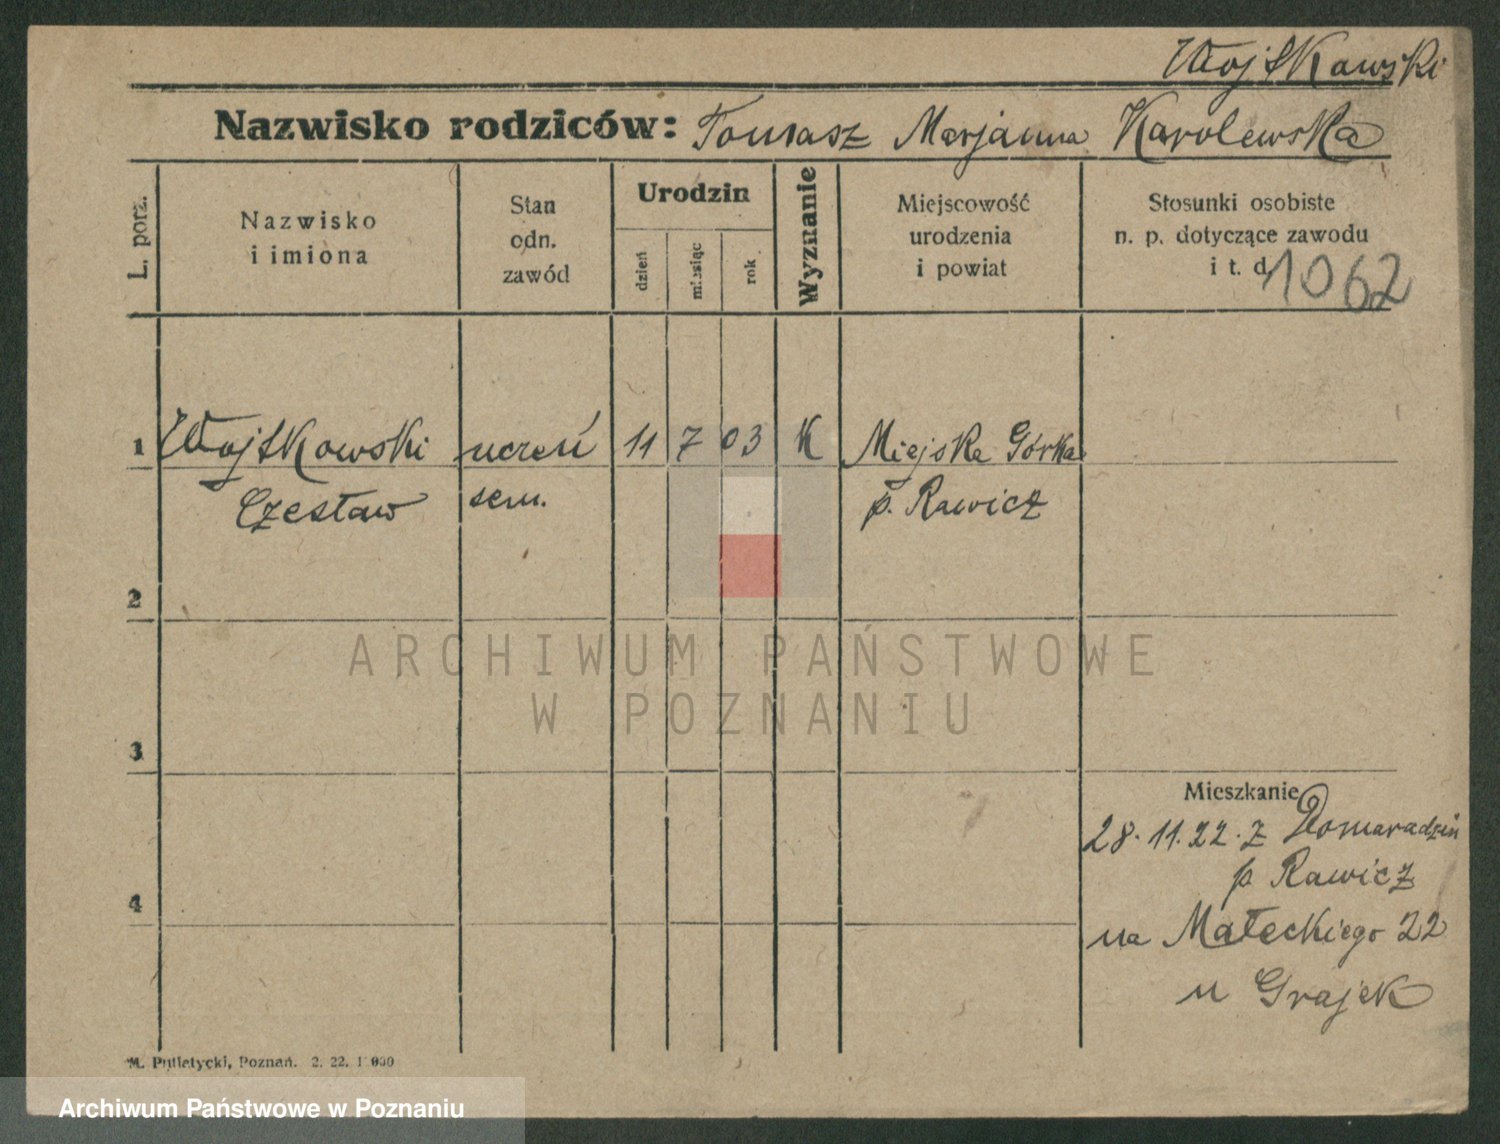 Wojtkowski
Nazwisko rodziców: Tomasz Marjanna Karolewska
L. porz.
Nazwisko
i imiona
Stan
odn.
zawód
Urodzin
dzień
miesiąc
rok
Wyznanie
Miejscowość
urodzenia
i powiat
Stosunki osobiste
n. p. dotyczące zawodu
i t. d.
1062
1 Wojtkowski uczeń 11 7 03 K Miejska Górka
Czesław sem. p. Rawicz
2
ARCHIWUM PAŃSTWOWE
W POZNANIU
3
Mieszkanie
28.11.22. z Domaradzin
p Rawicz
4
na Małeckiego 22
u Grajek
M. Putiatycki, Poznań. 2. 22.
Archiwum Państwowe w Poznaniu